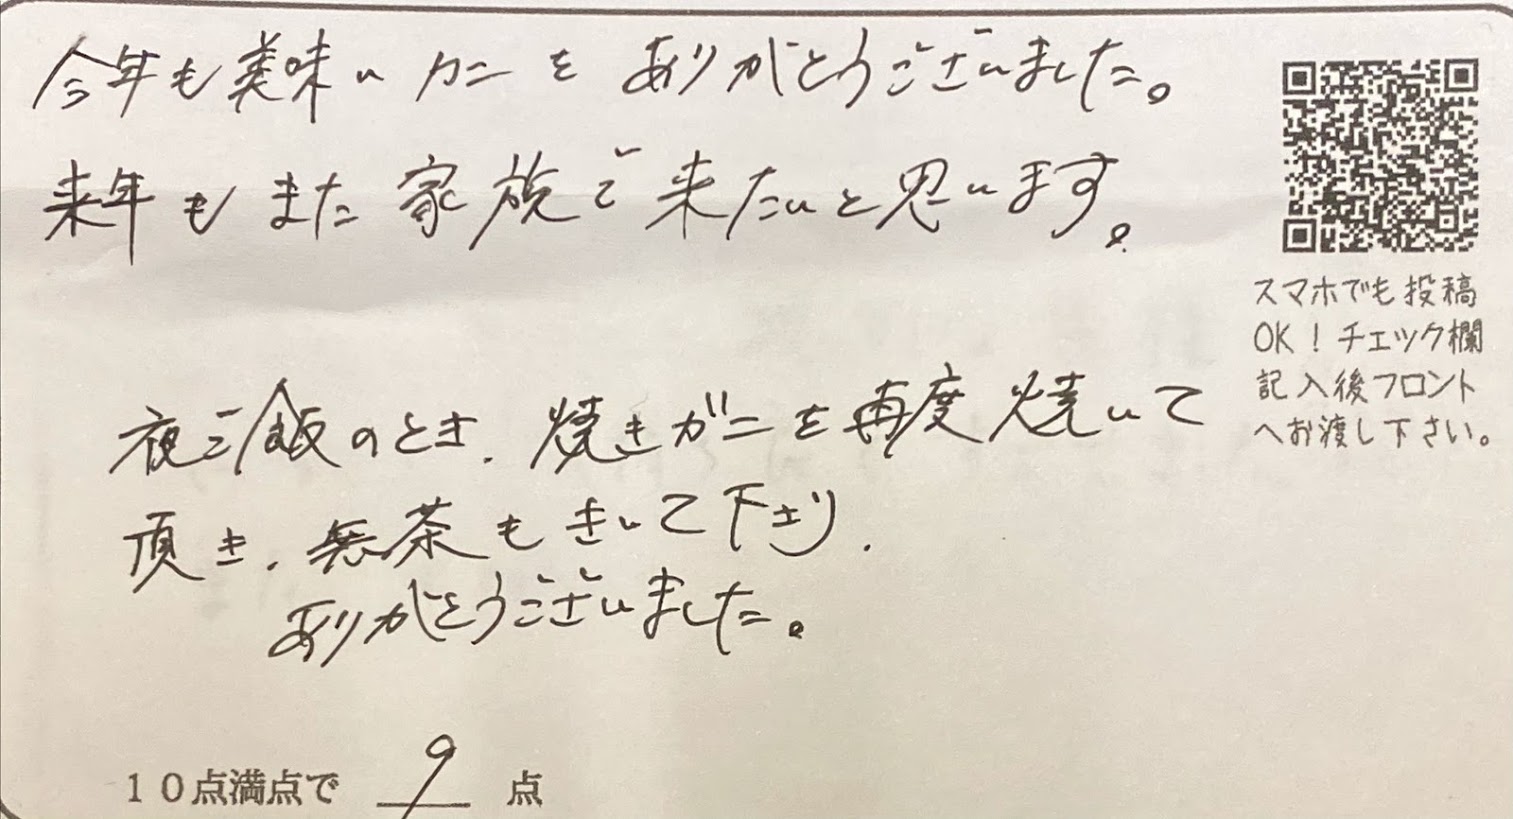 今年も美味いカニをありがとうございました。
来年もまた家族で来たいと思います。
スマホでも投稿
OK！チェック欄
記入後フロント
へお渡し下さい。
夜ご飯のとき、焼きガニを再度焼いて
頂き、無茶もきいて下さり、
ありがとうございました。
10点満点で 9 点